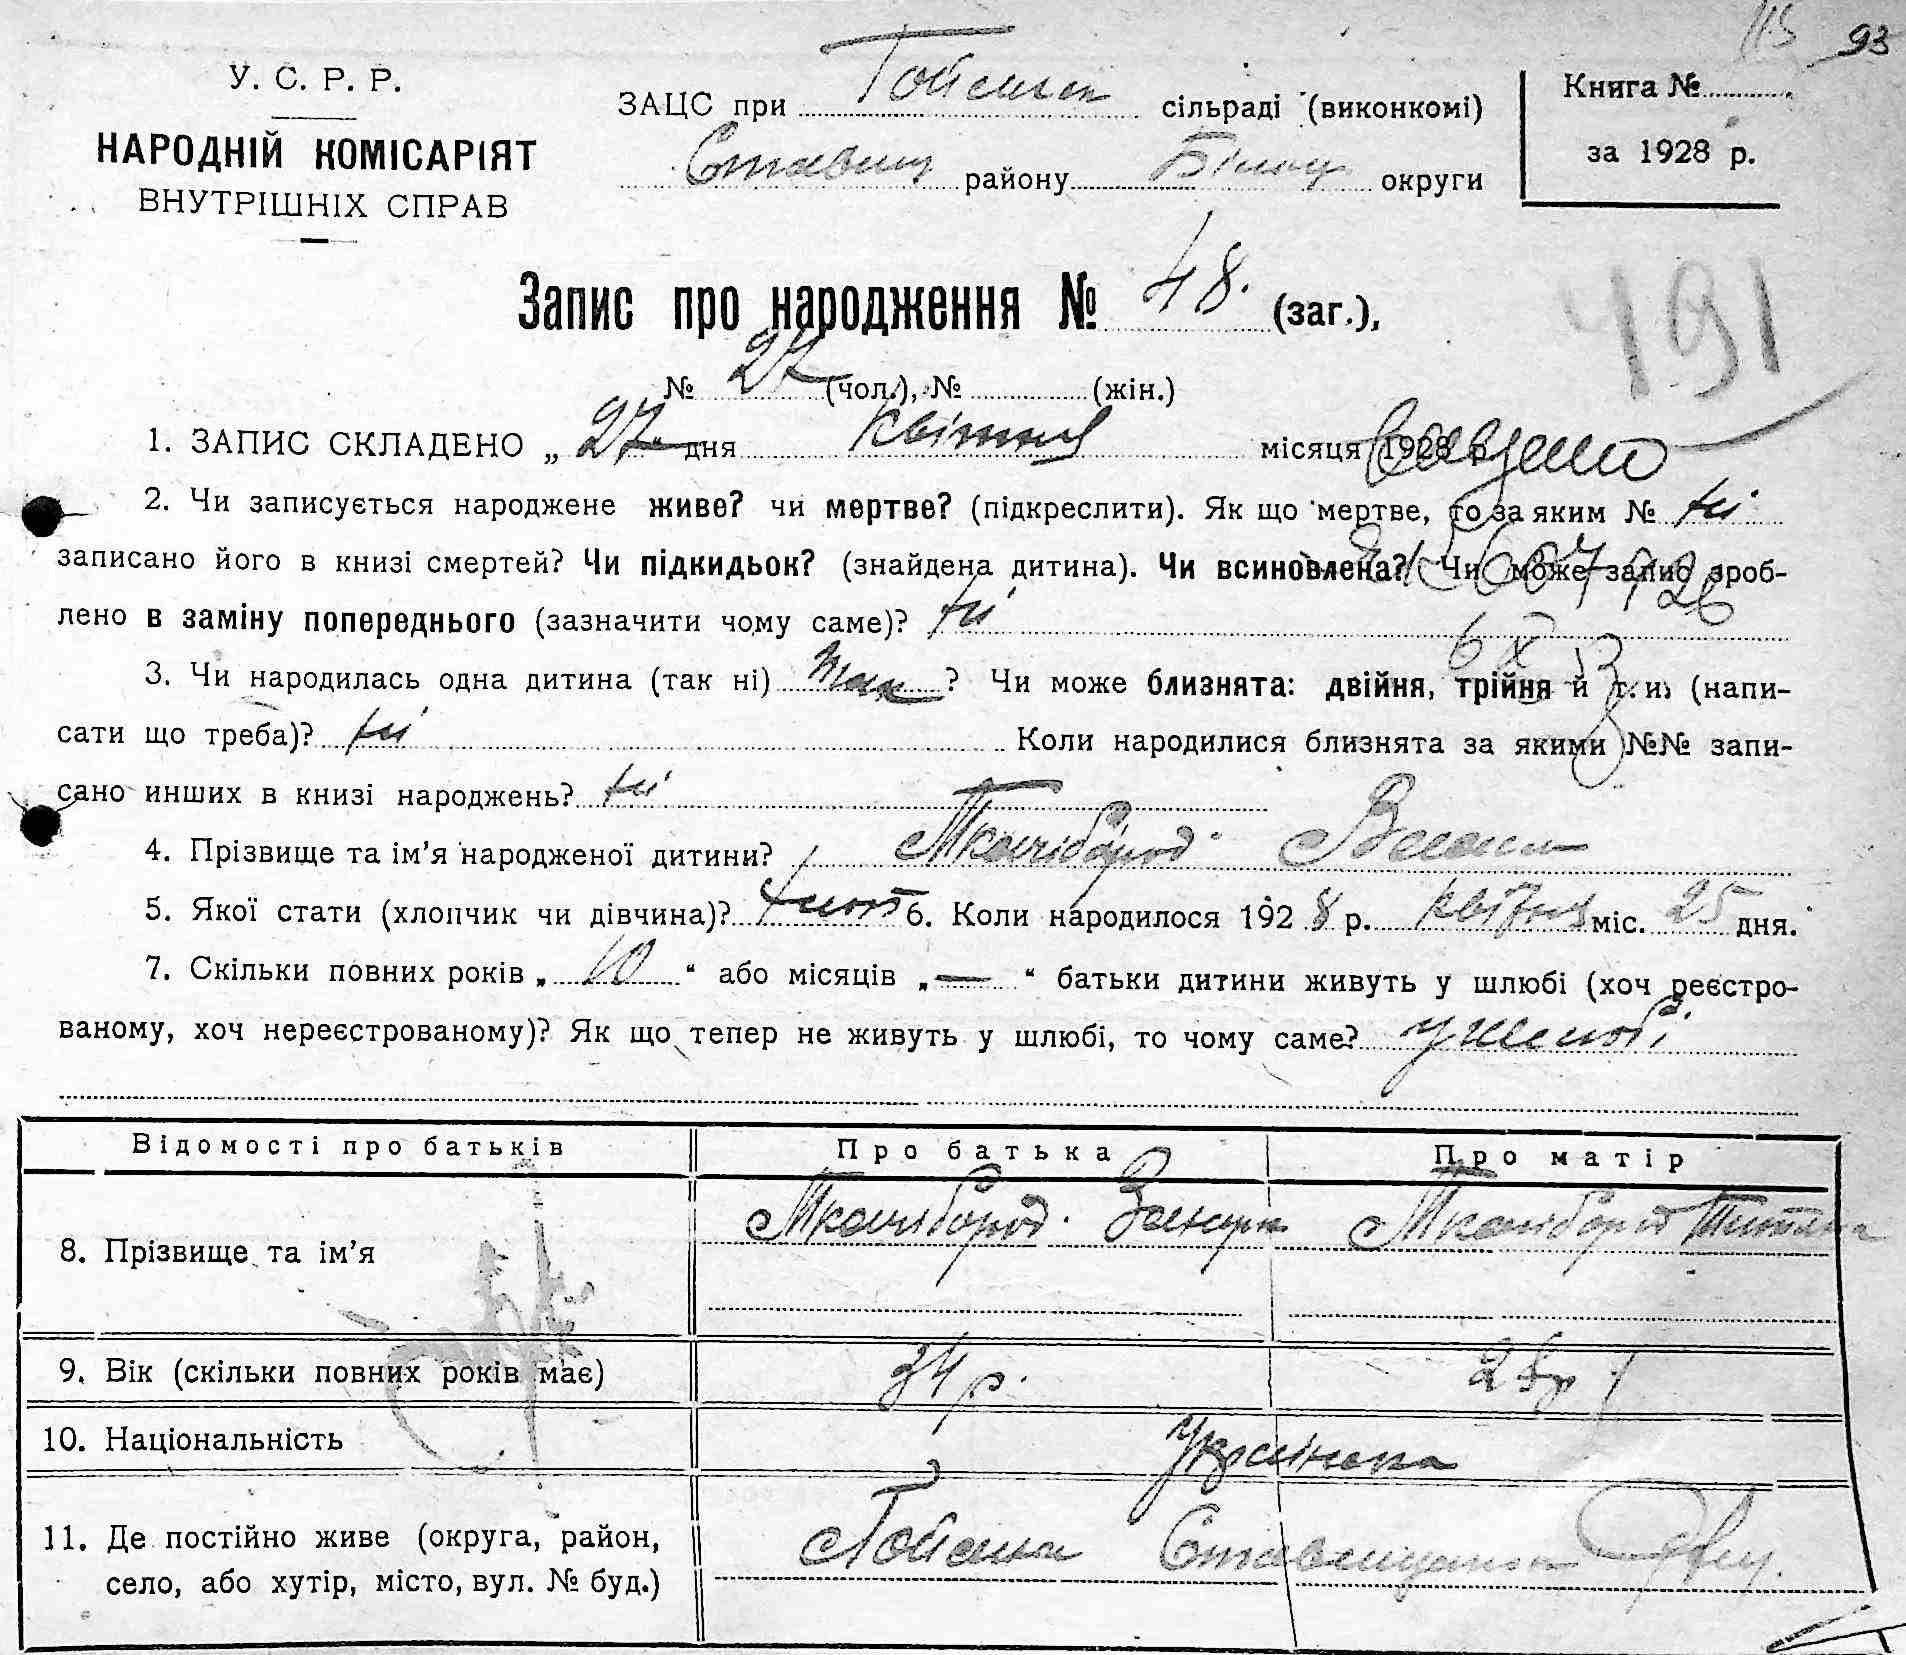 93
У. С. Р. Р.
НАРОДНІЙ КОМІСАРІЯТ
ВНУТРІШНІХ СПРАВ
ЗАЦС при сільраді (виконкомі)
Ставищ району Білоц округи
Книга №
за 1928 р.
Запис про народження № 48. (заг.),
491
№ 27 (чол.), № (жін.)
1. ЗАПИС СКЛАДЕНО „ 27 дня квітня місяця 1928 р
2. Чи записується народжене живе? чи мертве? (підкреслити). Як що мертве, то за яким № ні
записано його в книзі смертей? Чи підкидьок? (знайдена дитина). Чи всиновлена? Чи може запис зроб-
лено в заміну попереднього (зазначити чому саме)? ні
3. Чи народилась одна дитина (так ні) так ? Чи може близнята: двійня, трійня й т. и. (напи-
сати що треба)? ні Коли народилися близнята за якими №№ запи-
сано инших в книзі народжень? ні
4. Прізвище та ім'я народженої дитини? Ткачібород
5. Якої стати (хлопчик чи дівчина)? 6. Коли народилося 1928 р. квітня міс. 25 дня.
7. Скільки повних років „ 10 “ або місяців „ — “ батьки дитини живуть у шлюбі (хоч реєстро-
ваному, хоч нереєстрованому)? Як що тепер не живуть у шлюбі, то чому саме? у шлюбі
Відомості про батьків Про батька Про матір
8. Прізвище та ім'я Ткачібород Захарк Ткачібород Титяна
9. Вік (скільки повних років має) 34 р.
10. Національність
11. Де постійно живе (округа, район,
село, або хутір, місто, вул. № буд.)